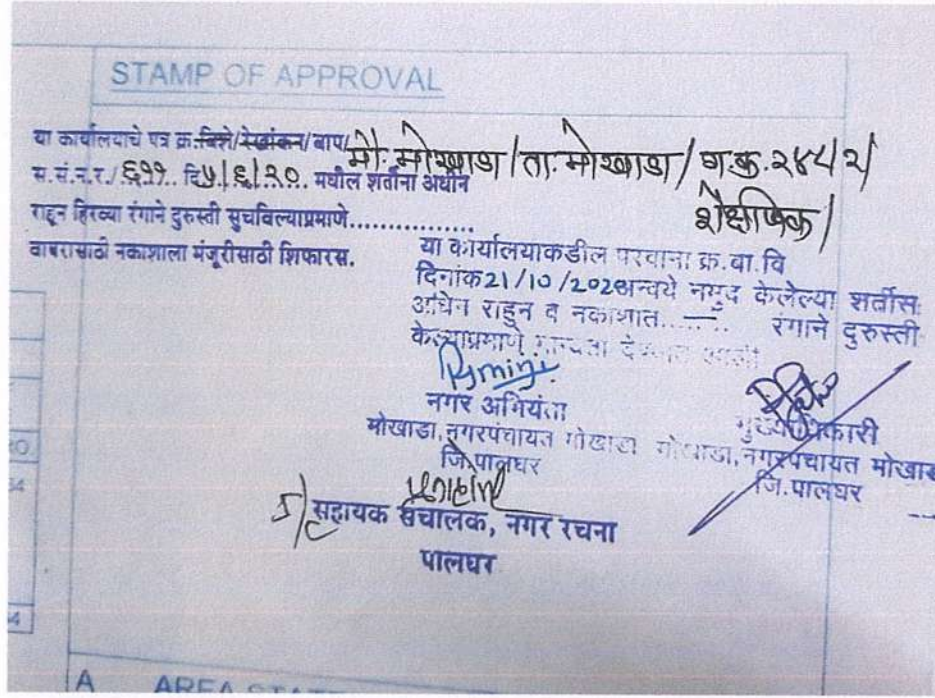 STAMP OF APPROVAL
या कार्यालयाचे पत्र क्र.बिशे/रेखांकन/बाप/मौ. मोखाडा/ता. मोखाडा/ग.क्र. २४८/२/
स.सं.न.र./६११. दि५/६/२०. मधील शर्तीना अधीन
शैक्षणिक/
राहून हिरव्या रंगाने दुरुस्ती सुचविल्याप्रमाणे................
वापरासाठी नकाशाला मंजूरीसाठी शिफारस.
या कार्यालयाकडील परवाना क्र.बा.वि
दिनांक21/10/202 अन्वये नमुद केलेल्या शर्तीस
अधिन राहुन व नकाशात...... रंगाने दुरुस्ती
केल्याप्रमाणे मान्यता देण्यात आली
नगर अभियंता
मोखाडा,नगरपंचायत मोखाडा
जि.पालघर
मुख्याधिकारी
मोखाडा,नगरपंचायत मोखाड
जि.पालघर
सहायक संचालक, नगर रचना
पालघर
80
64
64
A AREA STATE